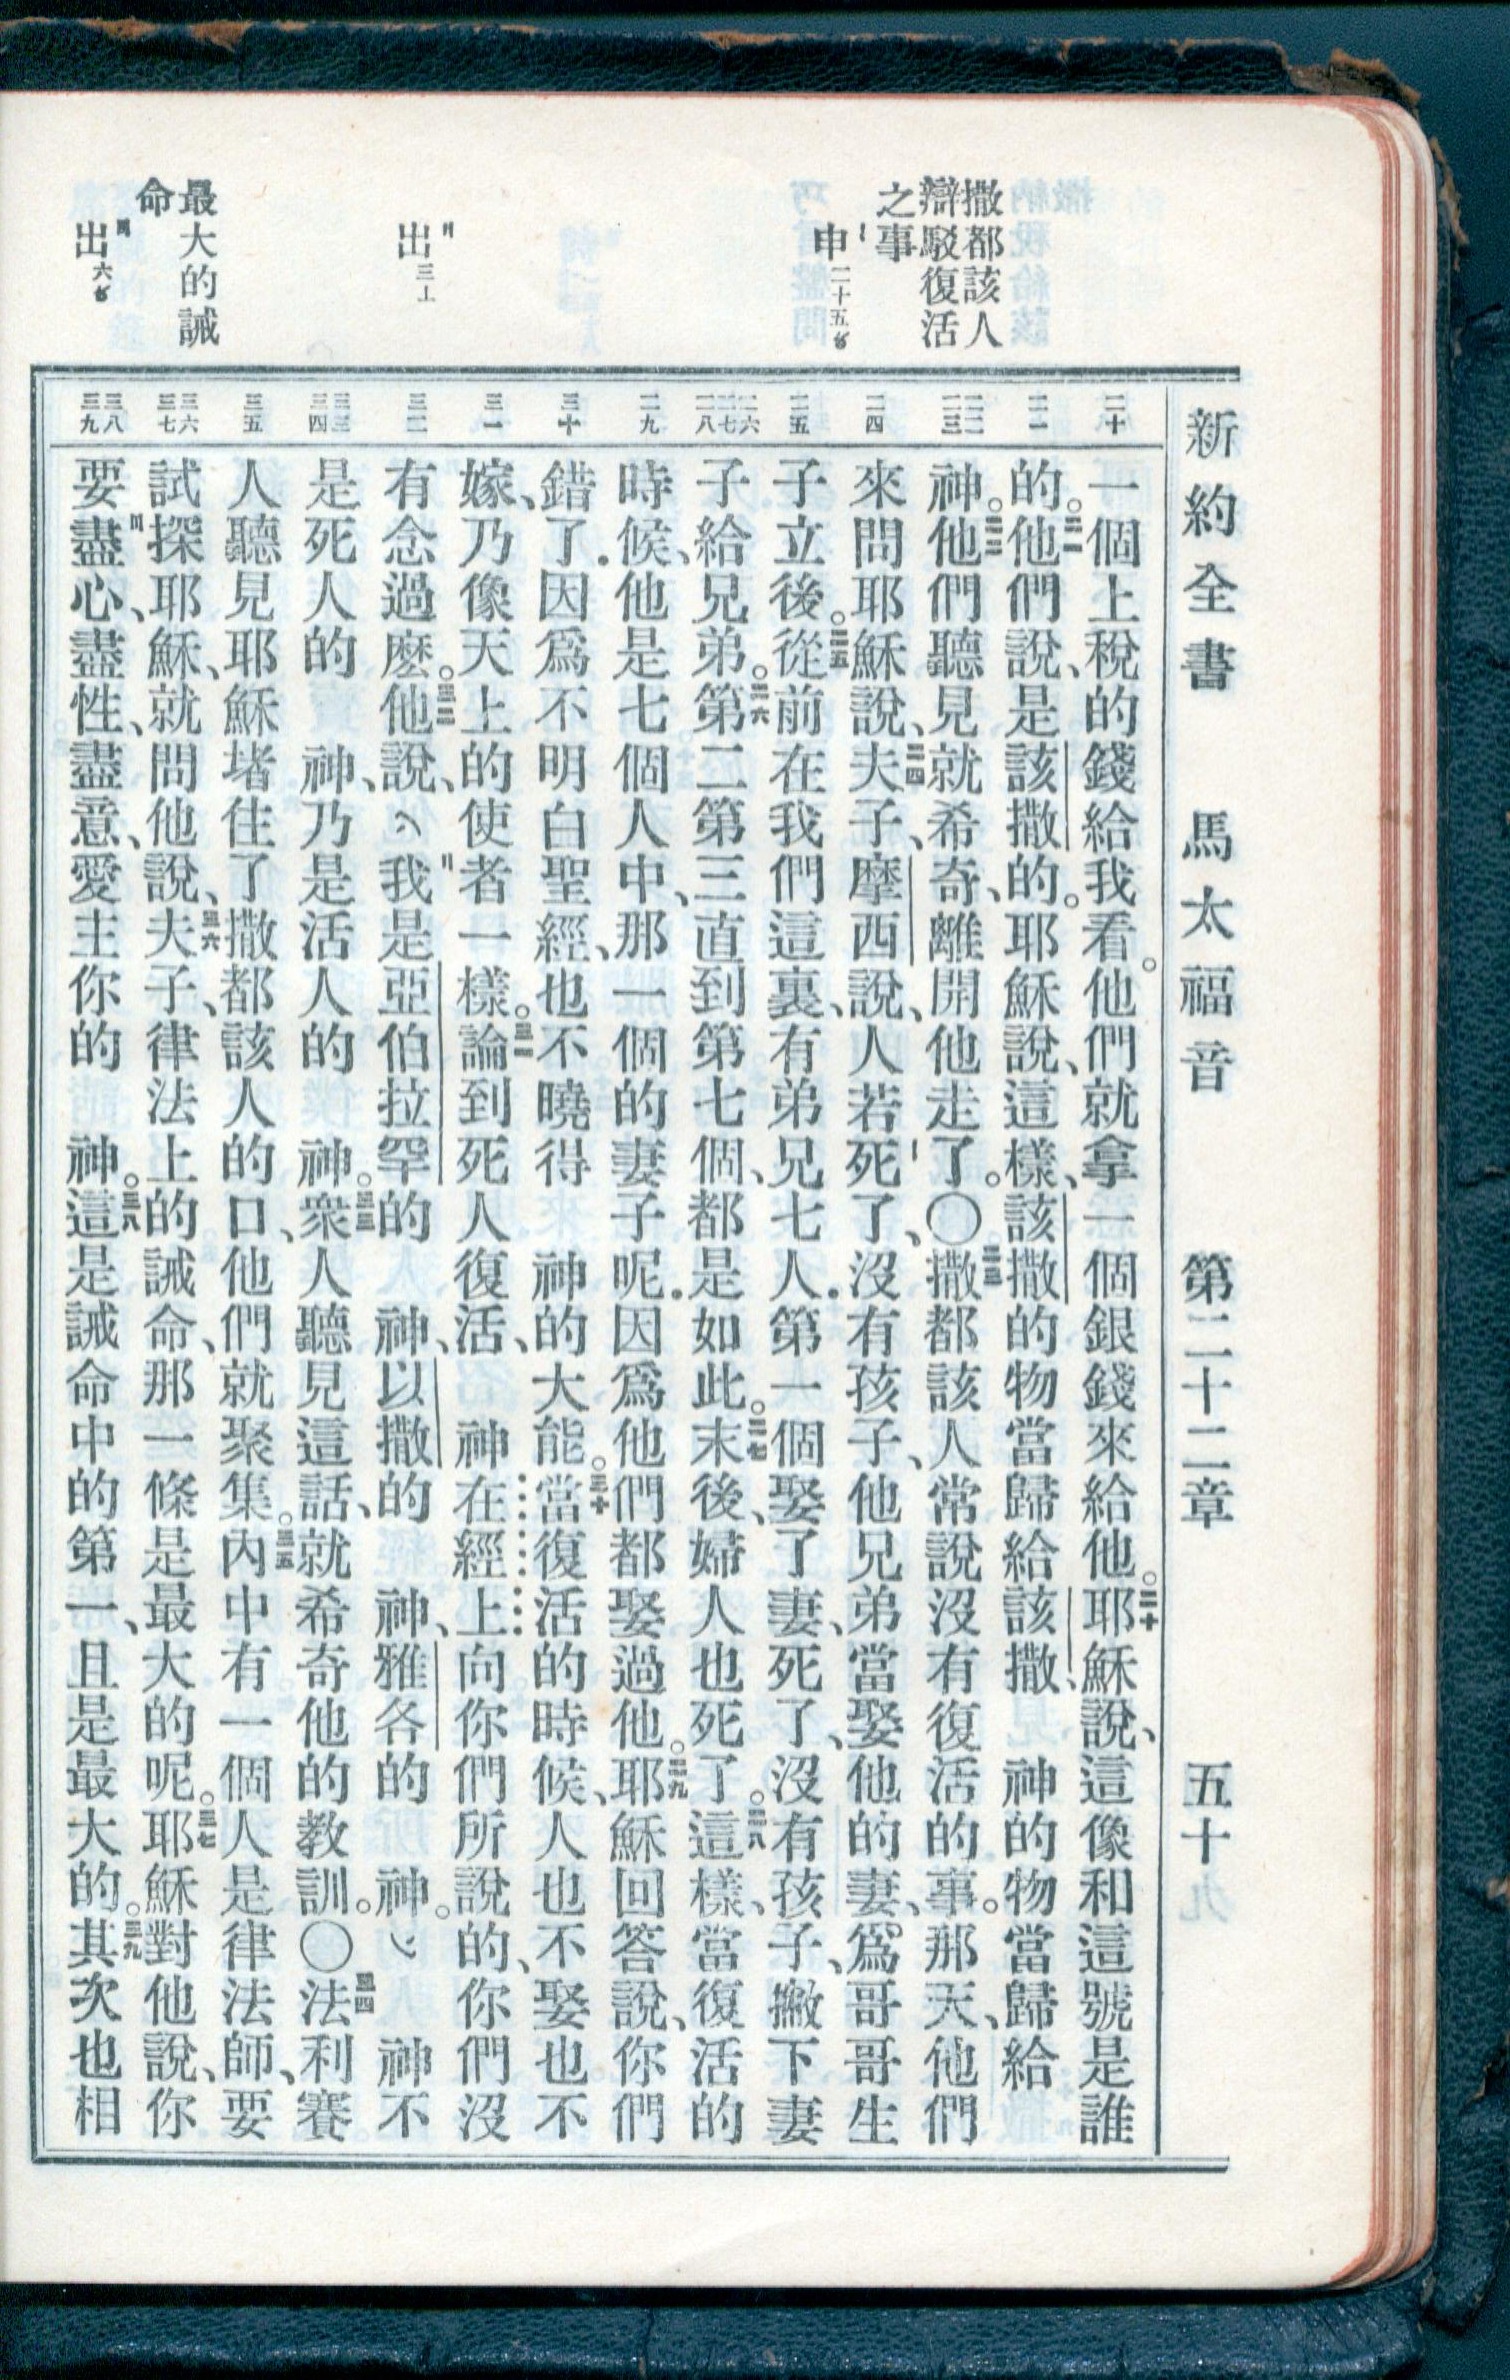 新約全書 馬太福音 第二十二章 五十
撒都該人
辯駁復活
之事
申二十五
出三
最大的誡
命
出六
二十
二一
二二
二三
二四
二五
二六
二七
二八
二九
三十
三一
三二
三三
三四
三五
三六
三七
三八
三九
一個上稅的錢給我看。他們就拿一個銀錢來給他。二十耶穌說、這像和這號是誰
的。二一他們說、是該撒的。耶穌說、這樣、該撒的物當歸給該撒、 神的物當歸給
神。二二他們聽見就希奇、離開他走了。〇二三撒都該人常說沒有復活的事。那天、他們
來問耶穌說、二四夫子、摩西說、人若死了、沒有孩子、他兄弟當娶他的妻、爲哥哥生
子立後。二五從前在我們這裏、有弟兄七人.第一個娶了妻、死了、沒有孩子、撇下妻
子給兄弟。二六第二第三直到第七個、都是如此。二七末後、婦人也死了。二八這樣、當復活的
時候、他是七個人中、那一個的妻子呢.因爲他們都娶過他。二九耶穌回答說、你們
錯了.因爲不明白聖經、也不曉得 神的大能。三十當復活的時候、人也不娶也不
嫁、乃像天上的使者一樣。三一論到死人復活、 神在經上向你們所說的、你們沒
有念過麼。三二他說、我是亞伯拉罕的 神、以撒的 神、雅各的 神。 神不
是死人的 神、乃是活人的 神。三三衆人聽見這話、就希奇他的教訓。〇三四法利賽
人聽見耶穌堵住了撒都該人的口、他們就聚集。三五內中有一個人是律法師、要
試探耶穌、就問他說、三六夫子、律法上的誡命、那一條是最大的呢。三七耶穌對他說、你
要盡心、盡性、盡意、愛主你的 神。三八這是誡命中的第一、且是最大的。三九其次也相